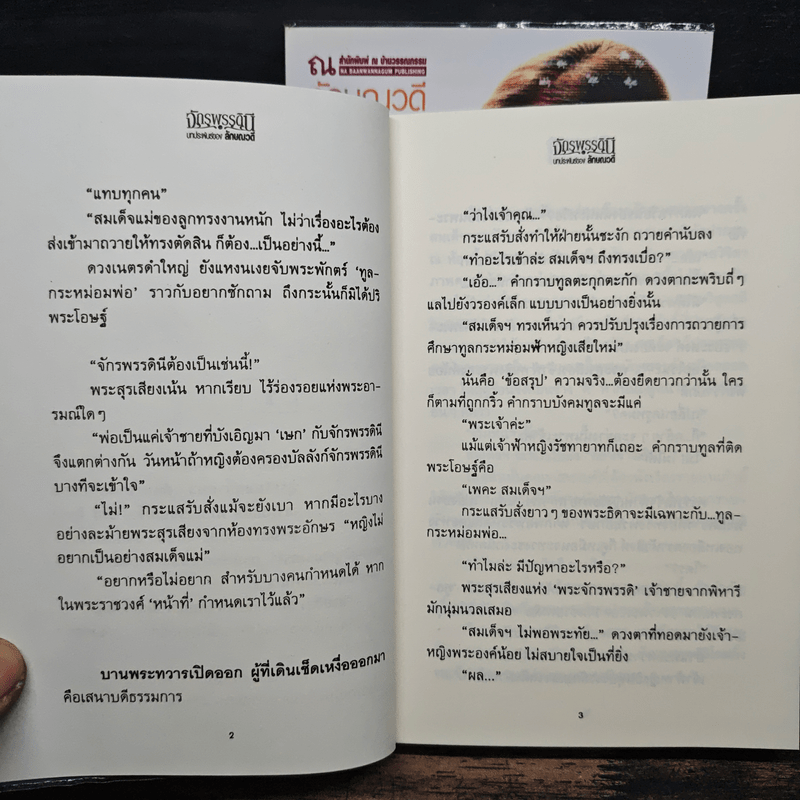 ณ สำนักพิมพ์ ณ บ้านวรรณกรรม
NA BAANWANNAGUM PUBLISHING
จักรพรรดินี
บทประพันธ์ของ ลักษณวดี
“แทบทุกคน”
“สมเด็จแม่ของลูกทรงงานหนัก ไม่ว่าเรื่องอะไรต้อง
ส่งเข้ามาถวายให้ทรงตัดสิน ก็ต้อง...เป็นอย่างนี้...”
ดวงเนตรดำใหญ่ ยังแหงนเงยจับพระพักตร์ ‘ทูล-
กระหม่อมพ่อ’ ราวกับอยากซักถาม ถึงกระนั้นก็มิได้ปริ
พระโอษฐ์
“จักรพรรดินีต้องเป็นเช่นนี้!”
พระสุรเสียงเน้น หากเรียบ ไร้ร่องรอยแห่งพระอา-
รมณ์ใดๆ
“พ่อเป็นแค่เจ้าชายที่บังเอิญมา ‘เษก’ กับจักรพรรดินี
จึงแตกต่างกัน วันหน้าถ้าหญิงต้องครองบัลลังก์จักรพรรดินี
บางทีจะเข้าใจ”
“ไม่!” กระแสรับสั่งแม้จะยังเบา หากมีอะไรบาง
อย่างละม้ายพระสุรเสียงจากห้องทรงพระอักษร “หญิงไม่
อยากเป็นอย่างสมเด็จแม่”
“อยากหรือไม่อยาก สำหรับบางคนกำหนดได้ หาก
ในพระราชวงศ์ ‘หน้าที่’ กำหนดเราไว้แล้ว”
บานพระทวารเปิดออก ผู้ที่เดินเช็ดเหงื่อออกมา
คือเสนาบดีธรรมการ
2
จักรพรรดินี
บทประพันธ์ของ ลักษณวดี
“ว่าไงเจ้าคุณ...”
กระแสรับสั่งทำให้ฝ่ายนั้นชะงัก ถวายคำนับลง
“ทำอะไรเข้าล่ะ สมเด็จฯ ถึงทรงเบื่อ?”
“เอ้อ...” คำกราบทูลตะกุกตะกัก ดวงตากะพริบถี่ๆ
แลไปยังวรองค์เล็ก แบบบางเป็นอย่างยิ่งนั้น
“สมเด็จฯ ทรงเห็นว่า ควรปรับปรุงเรื่องการถวายการ
ศึกษาทูลกระหม่อมฟ้าหญิงเสียใหม่”
นั่นคือ ‘ข้อสรุป’ ความจริง...ต้องยืดยาวกว่านั้น ใคร
ก็ตามที่ถูกกริ้ว คำกราบบังคมทูลจะมีแค่
“พระเจ้าค่ะ”
แม้แต่เจ้าฟ้าหญิงรัชทายาทก็เถอะ คำกราบทูลที่ติด
พระโอษฐ์คือ
“เพคะ สมเด็จฯ”
กระแสรับสั่งยาวๆ ของพระธิดาจะมีเฉพาะกับ...ทูล-
กระหม่อมพ่อ...
“ทำไมล่ะ มีปัญหาอะไรหรือ?”
พระสุรเสียงแห่ง ‘พระจักรพรรดิ’ เจ้าชายจากพิหารี
มักนุ่มนวลเสมอ
“สมเด็จฯ ไม่พอพระทัย...” ดวงตาที่ทอดมายังเจ้า-
หญิงพระองค์น้อย ไม่สบายใจเป็นที่ยิ่ง
“ผล...”
3